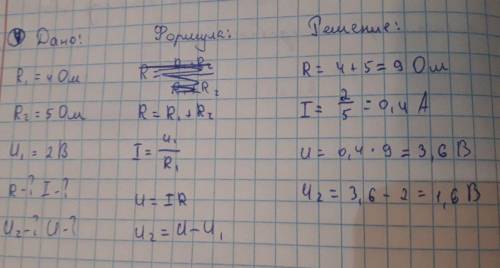 ④ Дано:
R₁ = 4 Ом
R₂ = 5 Ом
U₁ = 2 В
R - ? I - ?
U₂ - ? U - ?
Формула:
R = R₁ + R₂
I = U₁ / R₁
U = IR
U₂ = U - U₁
Решение:
R = 4 + 5 = 9 Ом
I = 2/5 = 0,4 А
U = 0,4 · 9 = 3,6 В
U₂ = 3,6 - 2 = 1,6 В